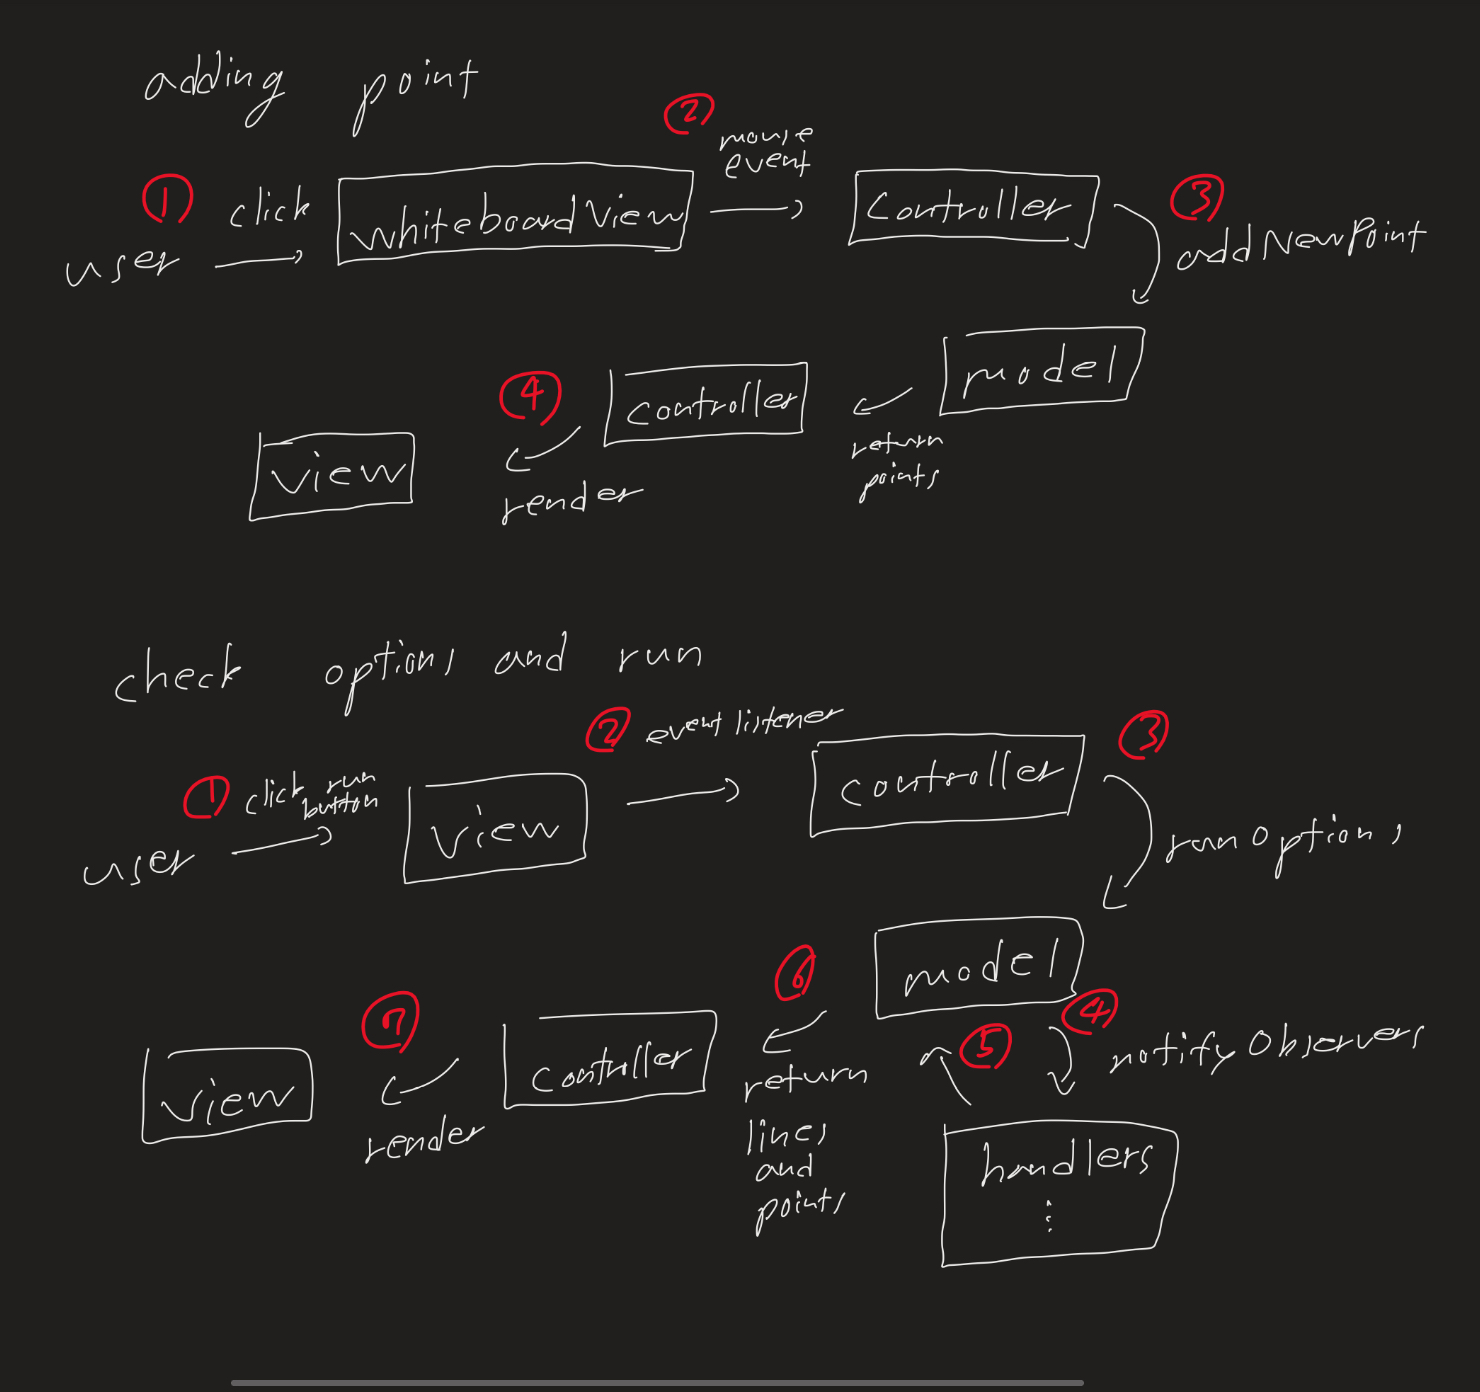 adding point
② mouse
event
① click
user
whiteboardView
Controller
③
addNewPoint
model
return
points
④
controller
render
view
check options and run
① click run
button
user
view
② event listener
controller
③
runOptions
model
④
notifyObservers
handlers
⋮
⑤
⑥
return
lines
and
points
controller
⑦
render
view